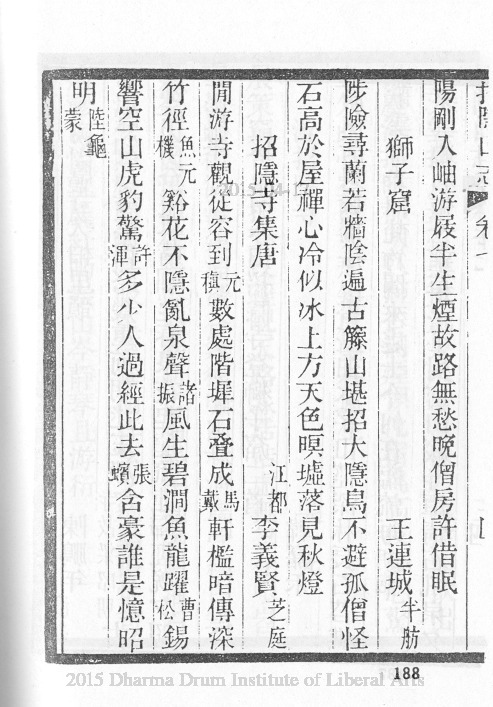 招隱山志 卷十
陽剛入岫游屐半生煙故路無愁晚僧房許借眠
獅子窟 王連城半舫
陟險尋蘭若牆陰遍古籐山堪招大隱鳥不避孤僧怪
石高於屋禪心冷似冰上方天色暝墟落見秋燈
招隱寺集唐 江都李義賢芝庭
閒游寺觀從容到元稹數處階墀石叠成馬戴軒檻暗傳深
竹徑魚元機谿花不隱亂泉聲諸振風生碧澗魚龍躍曹松錫
響空山虎豹驚許渾多少人過經此去張蠙含豪誰是憶昭
明陸龜蒙
188
2015 Dharma Drum Institute of Liberal Arts